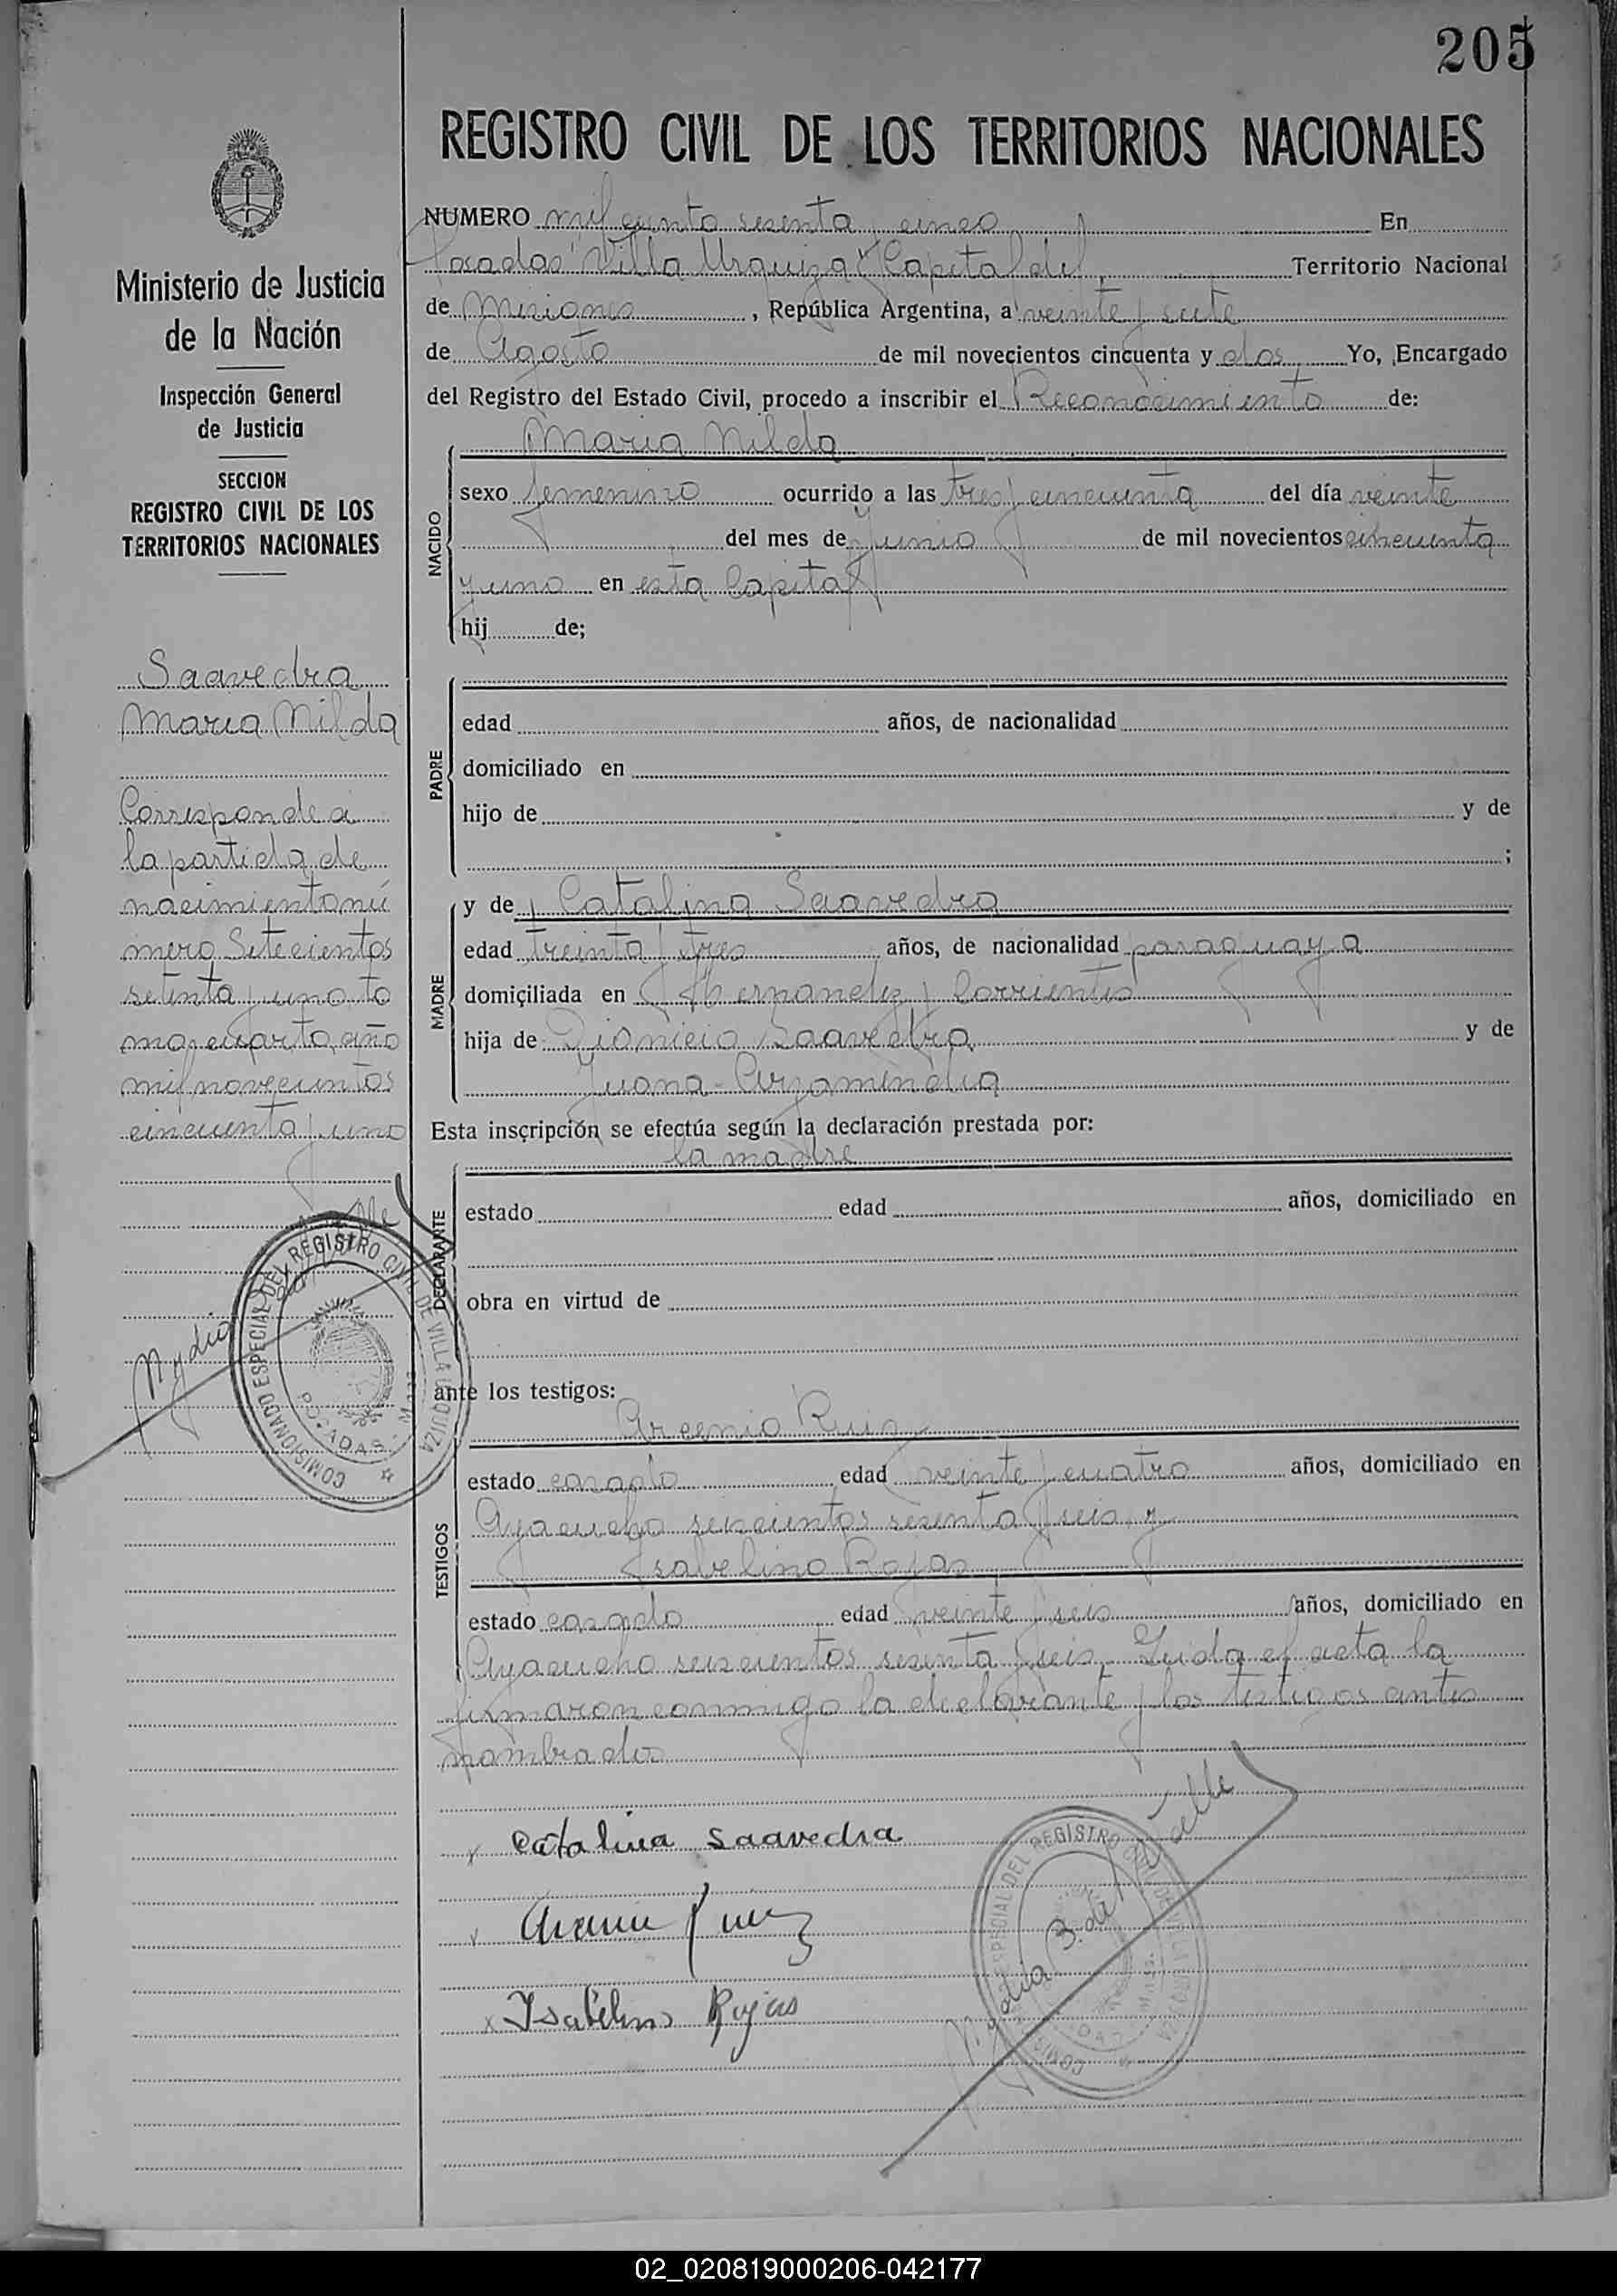 205
REGISTRO CIVIL DE LOS TERRITORIOS NACIONALES
NUMERO mil ciento sesenta y cinco En
Posadas Villa Urquiza Capital del Territorio Nacional
de Misiones, República Argentina, a veinte y siete
de Agosto de mil novecientos cincuenta y dos Yo, Encargado
del Registro del Estado Civil, procedo a inscribir el Reconocimiento de:
NACIDO
Maria Nilda
sexo femenino ocurrido a las tres y cincuenta del día veinte
del mes de Junio de mil novecientos cincuenta
y uno en esta Capital
hij de;
PADRE
edad años, de nacionalidad
domiciliado en
hijo de y de
;
MADRE
y de Catalina Saavedra
edad treinta y tres años, de nacionalidad paraguaya
domiciliada en Hernandez y Corrientes
hija de Dionicio Saavedra y de
Juana Argamendia
Esta inscripción se efectúa según la declaración prestada por:
DECLARANTE
la madre
estado edad años, domiciliado en
obra en virtud de
ante los testigos:
TESTIGOS
Arcenio Ruiz
estado casado edad veinte y cuatro años, domiciliado en
Ayacucho seiscientos sesenta y seis y
Isabelino Rojas
estado casado edad veinte y seis años, domiciliado en
Ayacucho seiscientos sesenta y seis. Leida el acta la
firmaron conmigo la declarante y los testigos antes
nombrados
x Catalina Saavedra
x Arcenio Ruiz
x Isabelino Rojas
Ministerio de Justicia
de la Nación
Inspección General
de Justicia
SECCION
REGISTRO CIVIL DE LOS
TERRITORIOS NACIONALES
Saavedra
Maria Nilda
Corresponde a
la partida de
nacimiento nú
mero Setecientos
setenta y uno to
mo cuarto año
mil novecientos
cincuenta y uno
COMISIONADO ESPECIAL DEL REGISTRO CIVIL DE VILLA URQUIZA
POSADAS
Nydia B. de
COMISIONADO ESPECIAL DEL REGISTRO CIVIL DE VILLA URQUIZA
02_020819000206-042177